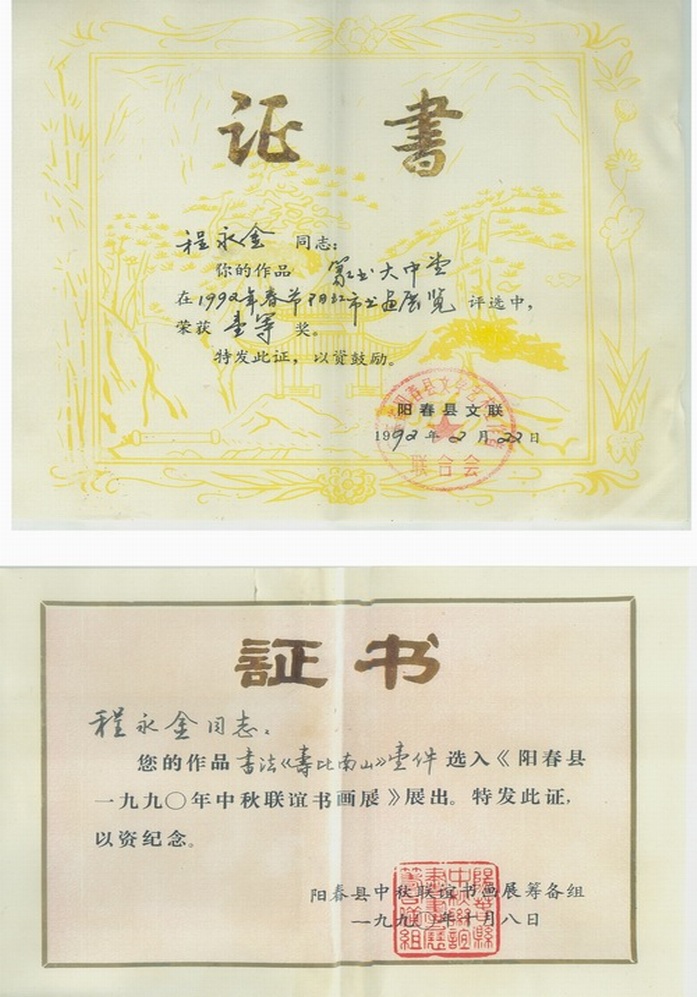 证 書
程永金 同志：
你的作品 篆书大中堂
在1992年春节阳江市书画展览 评选中，
荣获 壹等 奖。
特发此证，以资鼓励。
阳春县文联
1992年2月22日
联合会
証书
程永金同志：
您的作品书法《寿比南山》壹件选入《阳春县
一九九〇年中秋联谊书画展》展出。特发此证，
以资纪念。
阳春县中秋联谊书画展筹备组
一九九〇年十月八日